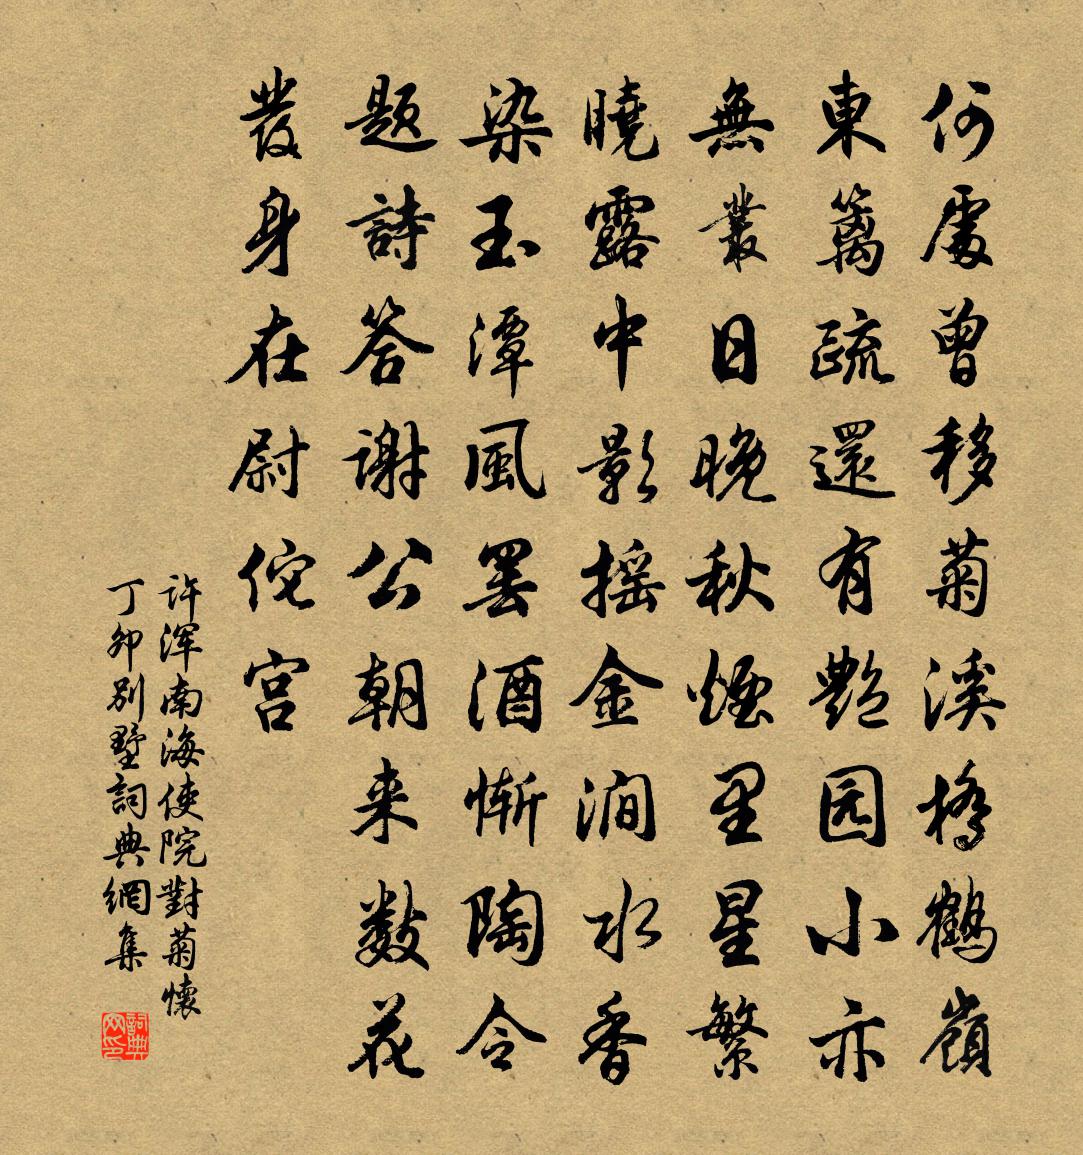 何處曾移菊溪橋鶴嶺
東籬疏還有艷园小亦
無叢日晚秋煙里星繁
曉露中影搖金澗水香
染玉潭風罢酒慚陶令
题詩答谢公朝来數花
發身在尉佗宫
许浑南海使院對菊懷
丁卯别墅詞典網集
詞典
网印